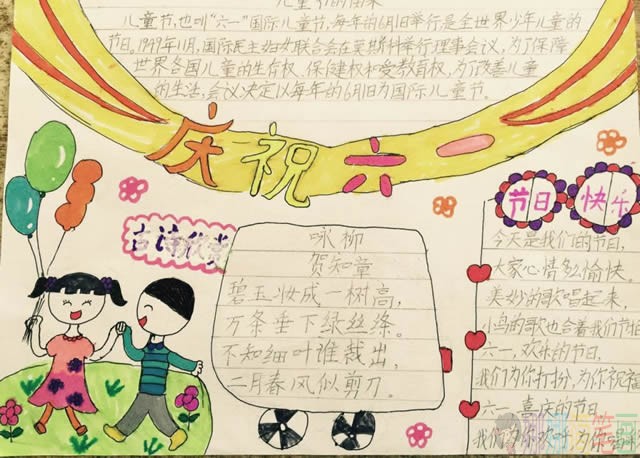 儿童节的由来
儿童节,也叫“六一”国际儿童节,每年的6月1日举行是全世界少年儿童的
节日。1949年11月,国际民主妇女联合会在莫斯科举行理事会议,为了保障
世界各国儿童的生存权、保健权和受教育权,为了改善儿童
的生活,会议决定以每年的6月1日为国际儿童节。
庆祝六一
古诗欣赏
咏柳
贺知章
碧玉妆成一树高,
万条垂下绿丝绦。
不知细叶谁裁出,
二月春风似剪刀。
节日快乐
今天是我们的节日,
大家心情多么愉快。
美妙的歌唱起来,
小鸟的歌也合着我们节拍
六一 欢乐的节日,
我们为你打扮,为你祝福
六一 喜庆的节日
我们为你欢呼,为你